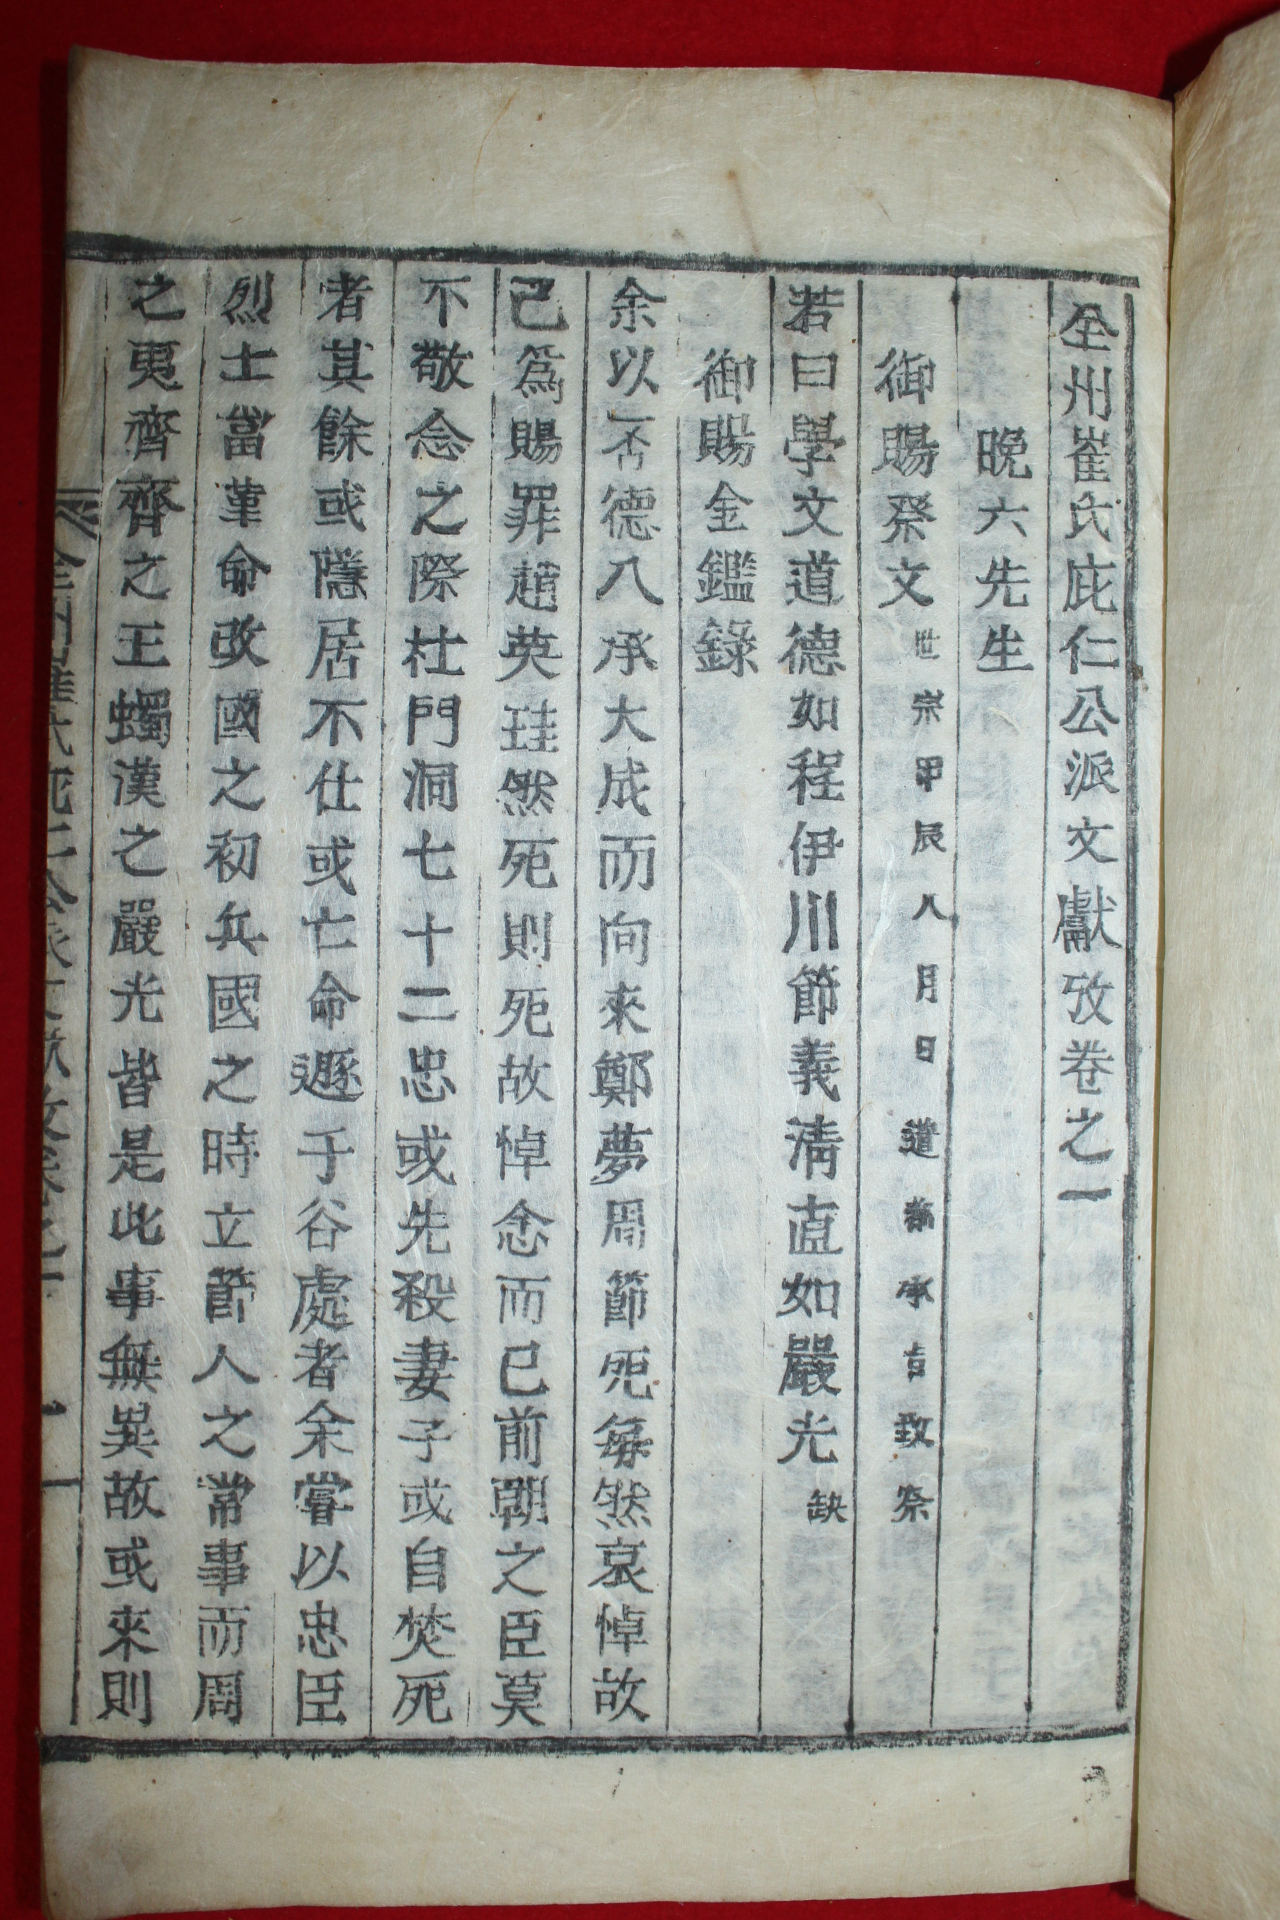 全州崔氏庇仁公派文獻攷卷之一
晩六先生
御賜祭文世宗甲辰八月日遣都承旨致祭
若曰學文道德如程伊川節義淸直如嚴光缺
御賜金鑑錄
余以否德入承大成而向來鄭夢周節死每然哀悼故
己爲賜罪趙英珪然死則死故悼念而己前朝之臣莫
不敬念之際杜門洞七十二忠或先殺妻子或自焚死
者其餘或隱居不仕或亡命遯于谷處者余嘗以忠臣
烈士當革命改國之初兵國之時立節人之常事而周
之夷齊齊之王蠋漢之嚴光皆是此事無異故或來則
全州崔氏庇仁公派文獻攷卷之一 一